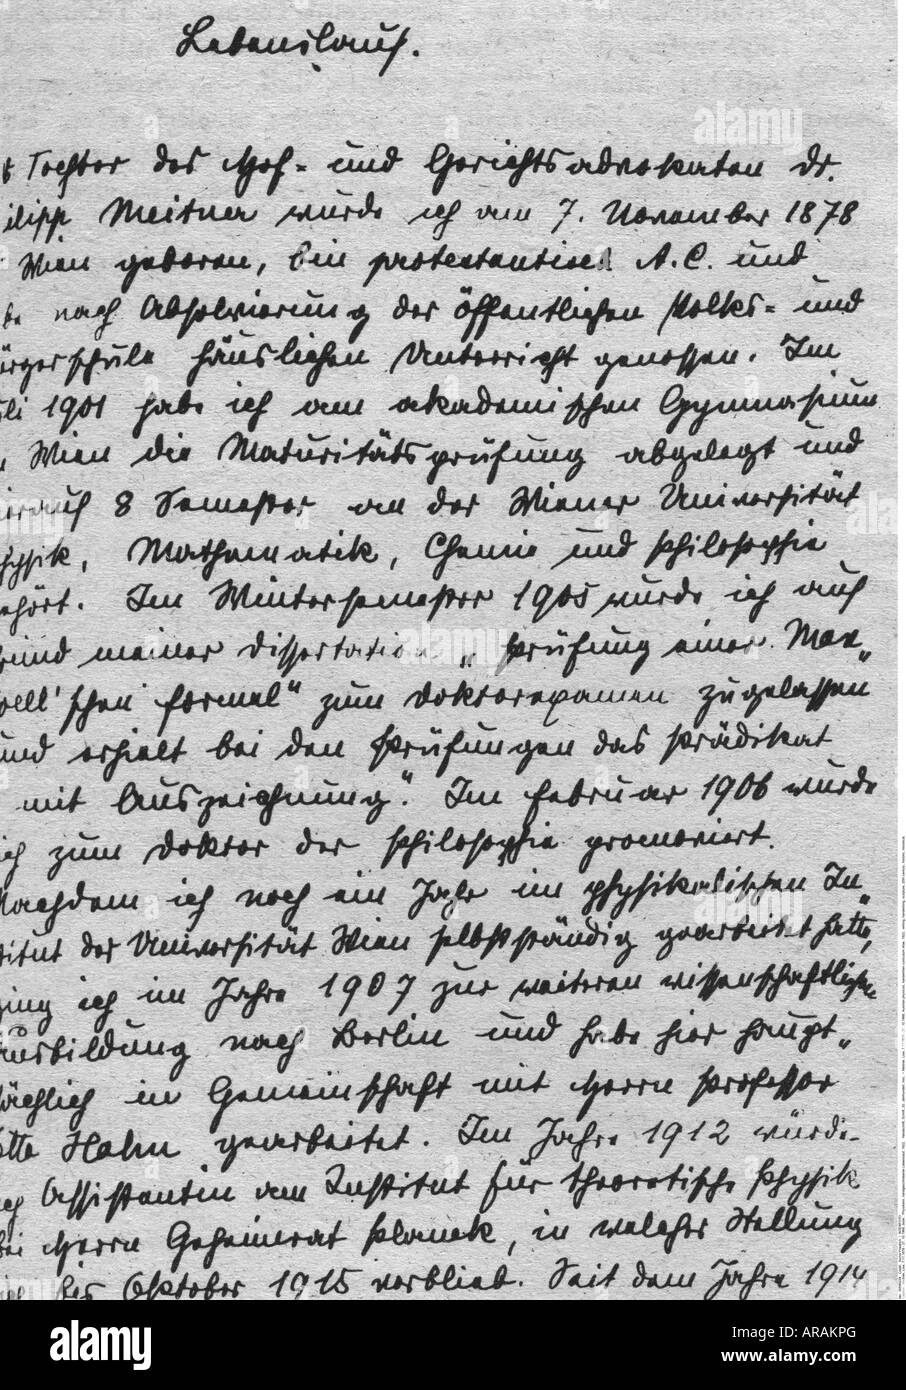 Lebenslauf.
Tochter des Hof= und Gerichtsadvokaten Dr.
ilipp Meitner wurde ich am 7. November 1878
Wien geboren, bin protestantisch A. C. und
be nach Absolvierung der öffentlichen Volks= und
ürgerschule häuslichen Unterricht genossen. Im
li 1901 habe ich am akademischen Gymnasium
Wien die Maturitätsprüfung abgelegt und
ierauf 8 Semester an der Wiener Universität
hysik, Mathematik, Chemie und Philosophie
ehört. Im Wintersemester 1905 wurde ich auf
rund meiner Dissertation „Prüfung einer Max„
well'schen Formel" zum Doktorexamen zugelassen
und erhielt bei den Prüfungen das Prädikat
mit Auszeichnung". Im Februar 1906 wurde
ich zum Doktor der Philosophie promoviert.
Nachdem ich noch ein Jahr im physikalischen In„
titut der Universität Wien selbstständig gearbeitet hatte,
ging ich im Jahre 1907 zur weiteren wissenschaftlichen
Ausbildung nach Berlin und habe hier haupt„
sächlich in Gemeinschaft mit Herrn Professor
Otto Hahn gearbeitet. Im Jahre 1912 wurde
ich Assistentin am Institut für theoretische Physik
bei Herrn Geheimrat Planck, in welcher Stellung
ich bis Oktober 1915 verblieb. Seit dem Jahre 1914
alamy
Image ID: ARAKPG
www.alamy.com